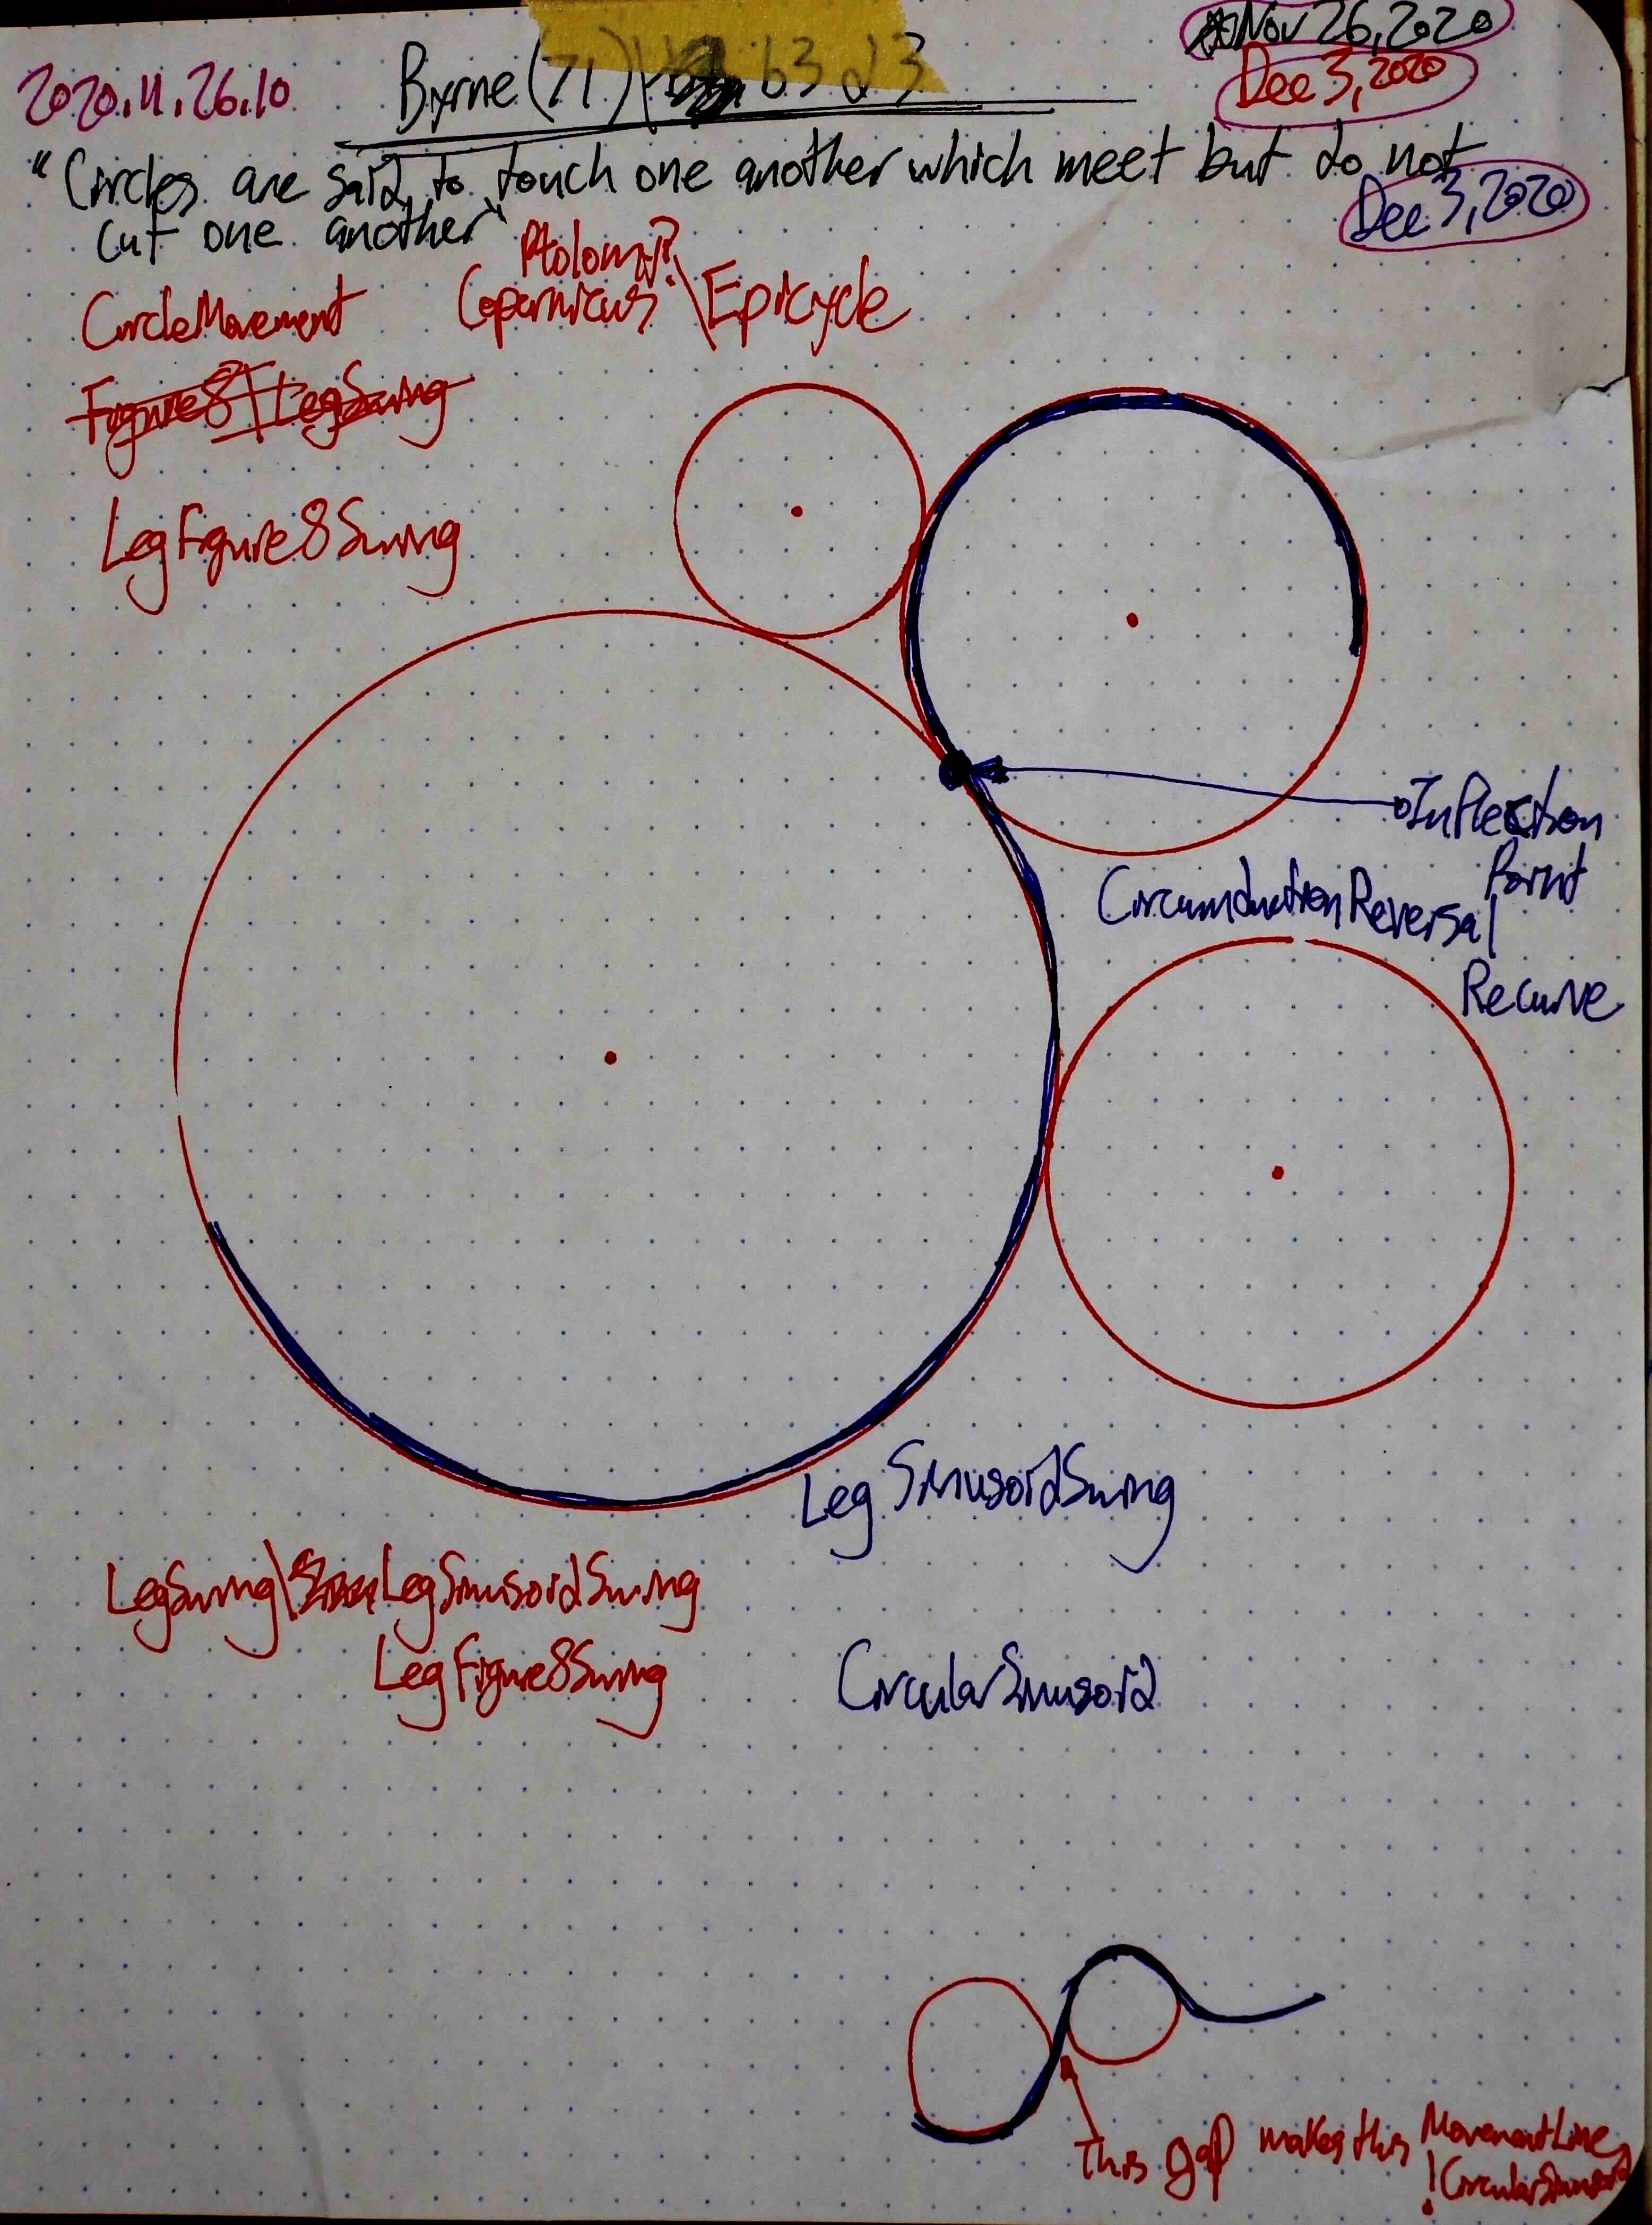 Nov 26, 2020
2020.11.26.10
Byrne (71) b3 d3
Dec 3, 2020
"Circles are said to touch one another which meet but do not
cut one another"
Dec 3, 2020
Ptolomy?
CircleMovement
Copernicus?\Epicycle
Figure8\LegSwing
LegFigure8Swing
InFlection
Point
CircumductionReversal
Recurve
LegSinusoidSwing
LegSwing\LegSinusoidSwing
LegFigure8Swing
CircularSinusoid
This gap makes this MovementLine
!CircularSinusoid